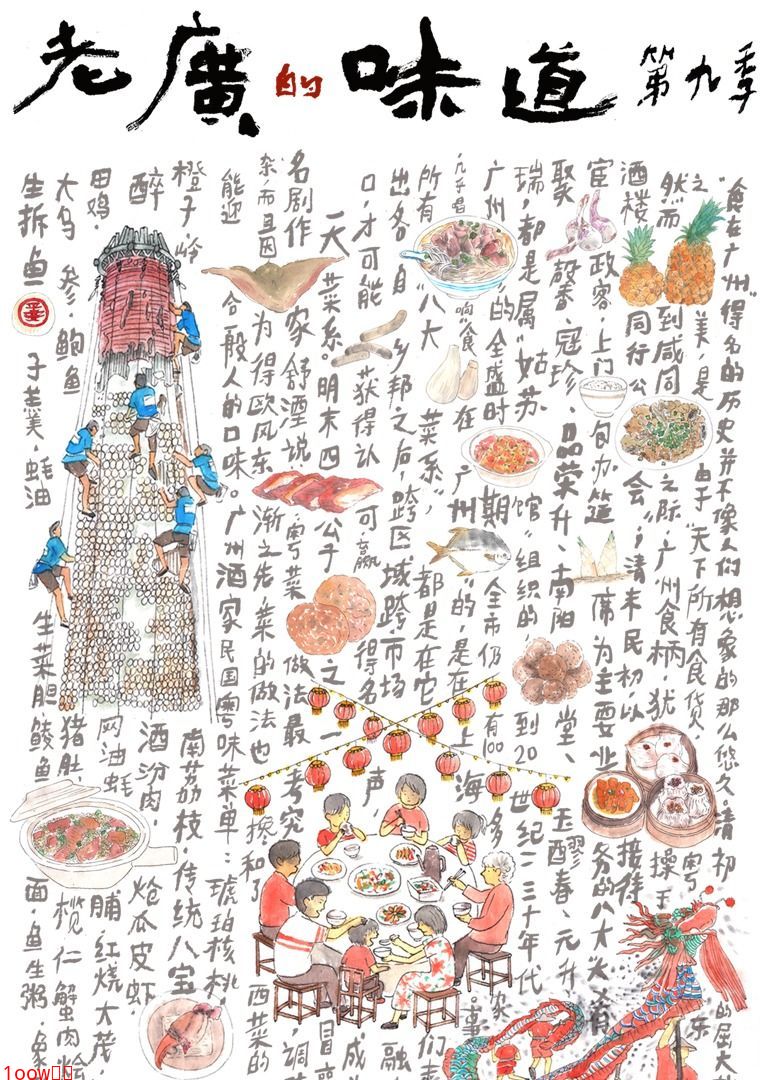 老廣的味道 第九季
“食在广州”得名的历史并不像人们想象的那么悠久。清初的屈大
之美,是由于“天下所有食货、粤东
然而到咸同之际,广州食柄,犹操
酒楼同行公会”,清末民初,以接待
宦政客,上门包办筵席为主要业务的八大大肴
聚馨、冠珍、品荣升、南阳堂、玉醪春、元升
瑞,都是属“姑苏馆”组织的,到20世纪二三十年代
广州的全盛时期,全市仍有100多家
几乎唱响“食在广州”的,是在上海
所有“八大菜系”,都是在它们
出各自乡邦之后,跨区域跨市场融
口,才可能获得认可,赢得名声,成
一大菜系。明末四公子之一冒
名剧作家舒湮说:粤菜做法最考究,调
杂,而且因为得欧风东渐之先,菜的做法也搀和了西菜的
能迎合一般人的口味。广州酒家民国粤味菜单:琥珀核桃,
橙子,岭南荔枝,传统八宝
醉酒汾肉,炝瓜皮虾,
田鸡,网油蚝脯,红烧大茂,
大乌参,鲍鱼猪肚,榄仁蟹肉烩
生拆鱼子羹,蚝油生菜胆,鲮鱼面,鱼生粥,象